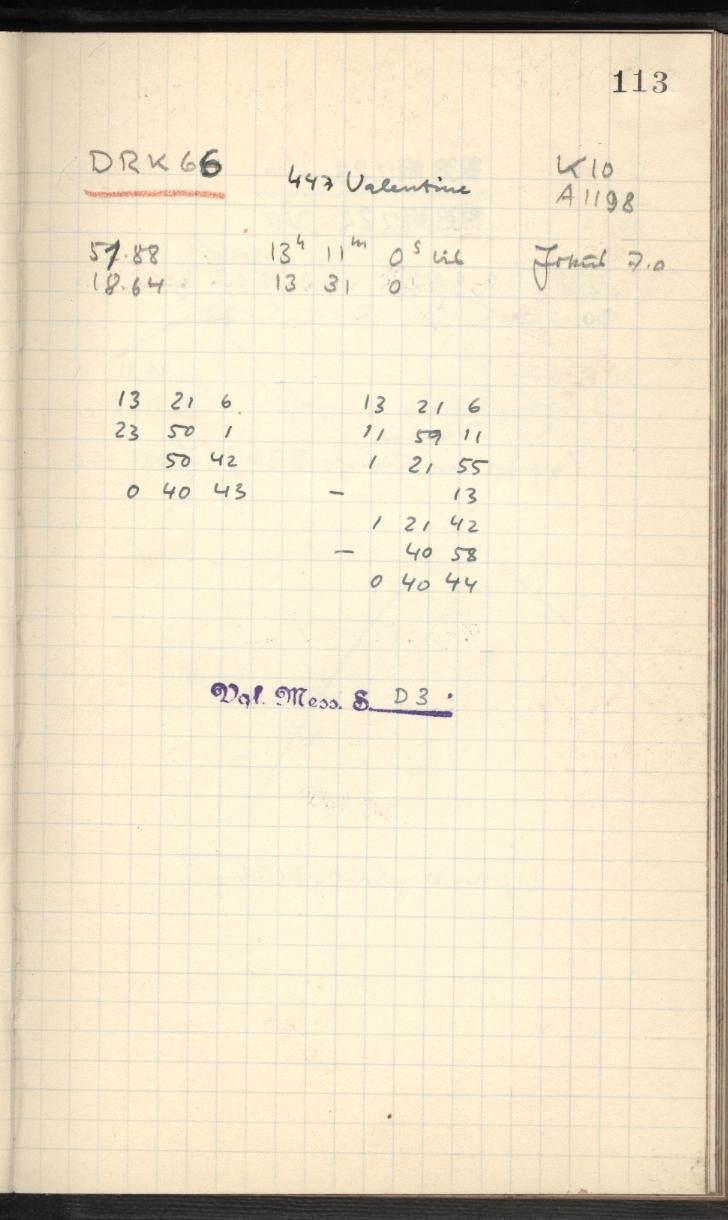 113
DRK 66 447 Valentine K 10
A 1198
57.88 13h 11m 0s 7.0
18.64 13 31 0
13 21 6 13 21 6
23 50 1 11 59 11
50 42 1 21 55
0 40 43 – 13
1 21 42
– 40 58
0 40 44
Vgl. Mess. S. D3